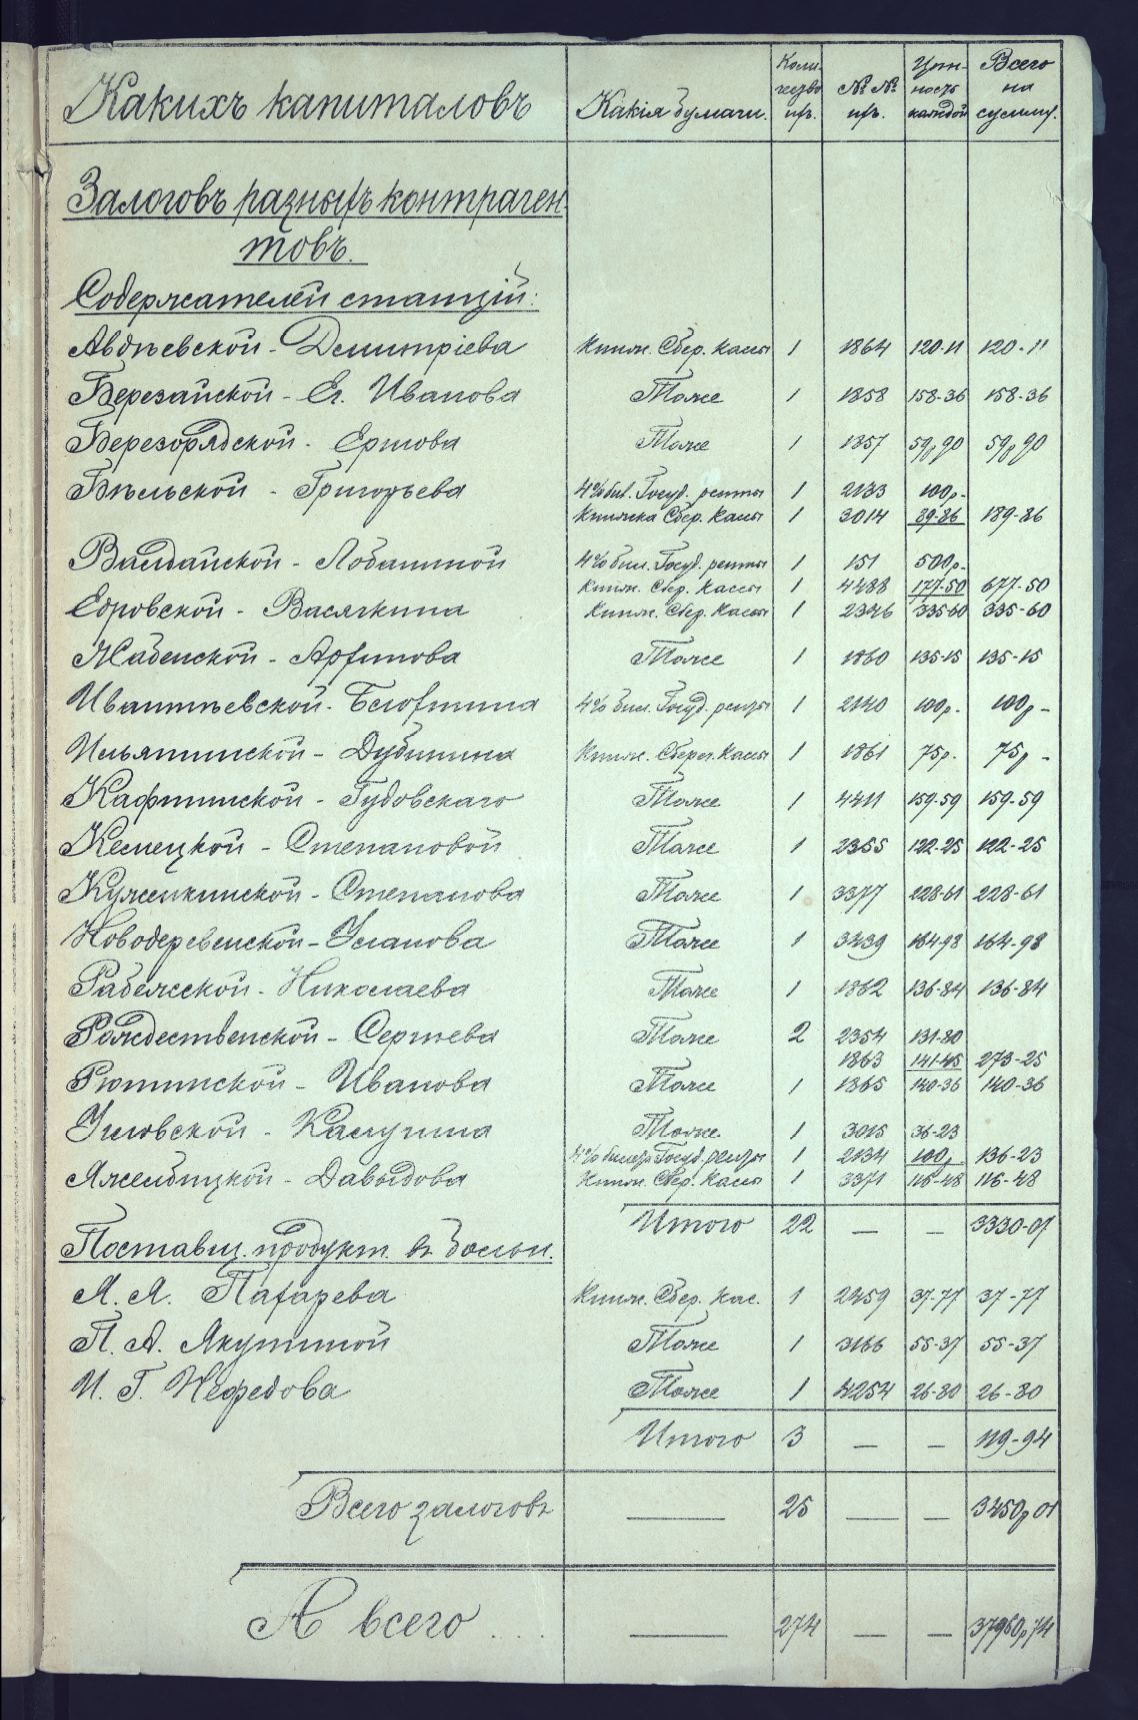 Какихъ капиталовъ Какія бумаги. Количество ихъ. №№ ихъ. Цѣнность каждой Всего на сумму.
Залоговъ разныхъ контраген-
товъ.
Содержателей станцій:
Авдѣевской - Дмитріева Книж. Сбер. кассы 1 1864 120-11 120-11
Березайской - Ег. Иванова Тоже 1 1858 158-36 158-36
Березорядской - Ершова Тоже 1 1857 59р90 59р90
Бѣльской - Григорьева 4% бил. Госуд. ренты 1 2133 100р.
Книжка Сбер. Кассы 1 3014 89-86 189-86
Валдайской - Лобашиной 4% бил. Госуд. ренты 1 151 500р.
Книж. Сбер. Кассы 1 4488 177-50 677-50
Едровской - Васячкина Книж. Сбер. Кассы 1 2346 335-60 335-60
Жабенской - Архипова Тоже 1 1860 135-15 135-15
Ивантѣевской - Блохина 4% бил. Госуд. ренты 1 2140 100р. 100р-
Ильятинской - Дубинина Книж. Сберег. Кассы 1 1861 75р. 75р-
Кафтинской - Гудовскаго Тоже 1 4411 159-59 159-59
Кемецкой - Степановой Тоже 1 2355 122-25 122-25
Куженкинской - Степанова Тоже 1 3377 228-61 228-61
Новодеревенской - Усанова Тоже 1 3439 164-98 164-98
Рабежской - Николаева Тоже 1 1862 136-84 136-84
Рождественской - Сергѣева Тоже 2 2354 131-80
1863 141-45 273-25
Рютинской - Иванова Тоже 1 1865 140-36 140-36
Угловской - Калугина Тоже 1 3015 36-23
4% билетъ Госуд. ренты 1 2134 100р 136-23
Яжелбицкой - Давыдова Книж. Сбер. Кассы 1 3371 116-48 116-48
Итого 22 — — 3330-07
Поставщ. продукт. въ больн.
А. А. Пахарева Книж. Сбер. кас. 1 2459 37-77 37-77
П. А. Якутиной Тоже 1 3166 55-37 55-37
И. Г. Нефедова Тоже 1 4254 26-80 26-80
Итого 3 — — 119-94
Всего залоговъ — 25 — — 3450р01
А всего .... — 274 — — 37960р74